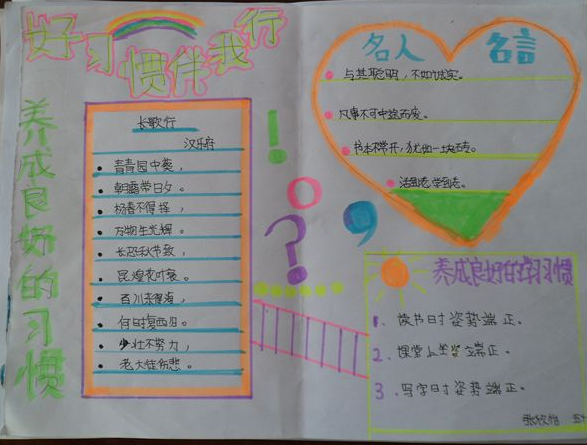 好习惯伴我行
养成良好的习惯
长歌行
汉乐府
青青园中葵，
朝露待日夕。
杨春不得择，
万物生光辉。
长恐秋节致，
昆煌花叶衰。
百川东
何日时复西归。
少壮不努力，
老大徒伤悲。
名人 名言
与其聪明，不如诚实。
凡事不可中途而废。
书本不常开，犹如一块砖。
活到老，学到老。
养成良好的学习惯
1、读书日寸姿势端正。
2、课堂上坐姿立端正。
3、写字日寸姿势端正。